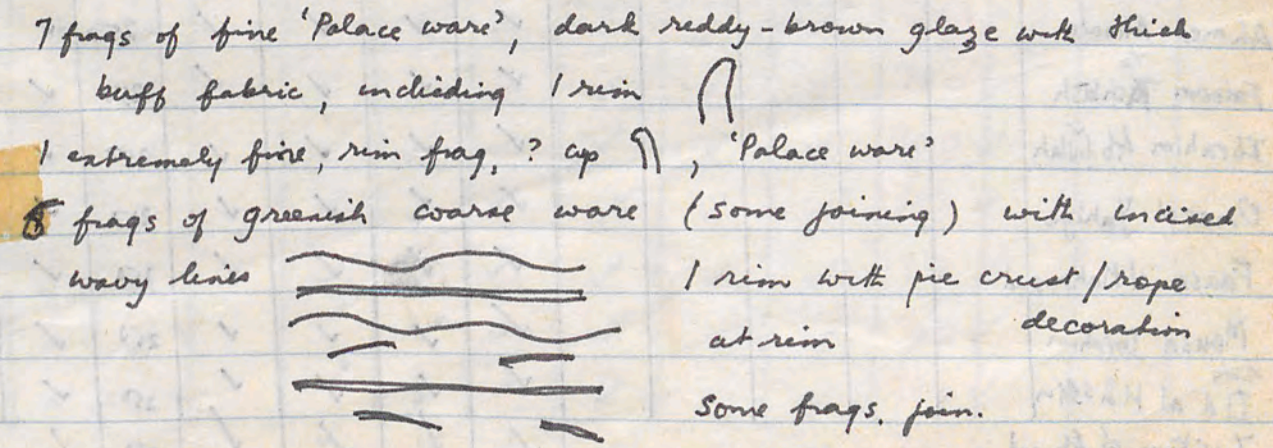 7 frags of fine 'Palace ware', dark reddy-brown glaze with thick
buff fabric, including 1 rim
1 extremely fine, rim frag, ? cup , 'Palace ware'
frags of greenish coarse ware (some joining) with incised
wavy lines
1 rim with pie crust/rope
decoration
at rim
Some frags. join.